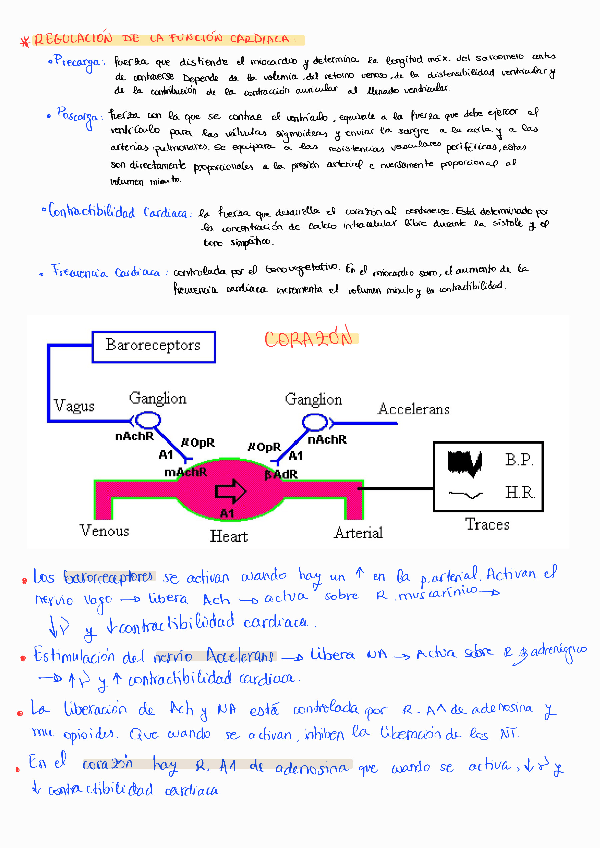 * REGULACIÓN DE LA FUNCIÓN CARDIACA
• Precarga: fuerza que distiende el miocardio y determina la longitud máx. del sarcomero antes
de contraerse. Depende de la volemia, del retorno venoso, de la distensibilidad ventricular y
de la contribución de la contracción auricular al llenado ventricular.
• Poscarga: fuerza con la que se contrae el ventrículo, equivale a la fuerza que debe ejercer el
ventrículo para las válvulas sigmoideas y enviar la sangre a la aorta y a las
arterias pulmonares. Se equipara a las resistencias vasculares periféricas, estas
son directamente proporcionales a la presión arterial e inversamente proporcional al
volumen minuto.
• Contractibilidad Cardiaca: la fuerza que desarrolla el corazón al contraerse. Está determinado por
la concentración de calcio intracelular libre durante la sístole y el
tono simpático.
• Frecuencia Cardiaca: controlada por el tono vegetativo. En el miocardio sano, el aumento de la
frecuencia cardiaca incrementa el volumen minuto y la contractibilidad.
CORAZÓN
Baroreceptors
Vagus
Ganglion
Ganglion
Accelerans
nAchR
μOpR
μOpR
nAchR
A1
A1
mAchR
βAdR
A1
B.P.
H.R.
Venous
Heart
Arterial
Traces
• Los barorreceptores se activan cuando hay un ↑ en la p.arterial. Activan el
nervio vago → libera Ach → actua sobre R. muscarínico →
↓ y ↓ contractibilidad cardiaca.
• Estimulación del nervio Accelerans → libera NA → Actua sobre R β adrenérgico
→ ↑ y ↑ contractibilidad cardiaca.
• La liberación de Ach y NA está controlada por R. A1 de adenosina y
mu opioides. Que cuando se activan, inhiben la liberación de los NT.
• En el corazón hay R. A1 de adenosina que cuando se activa, ↓ y
↓ contractibilidad cardiaca